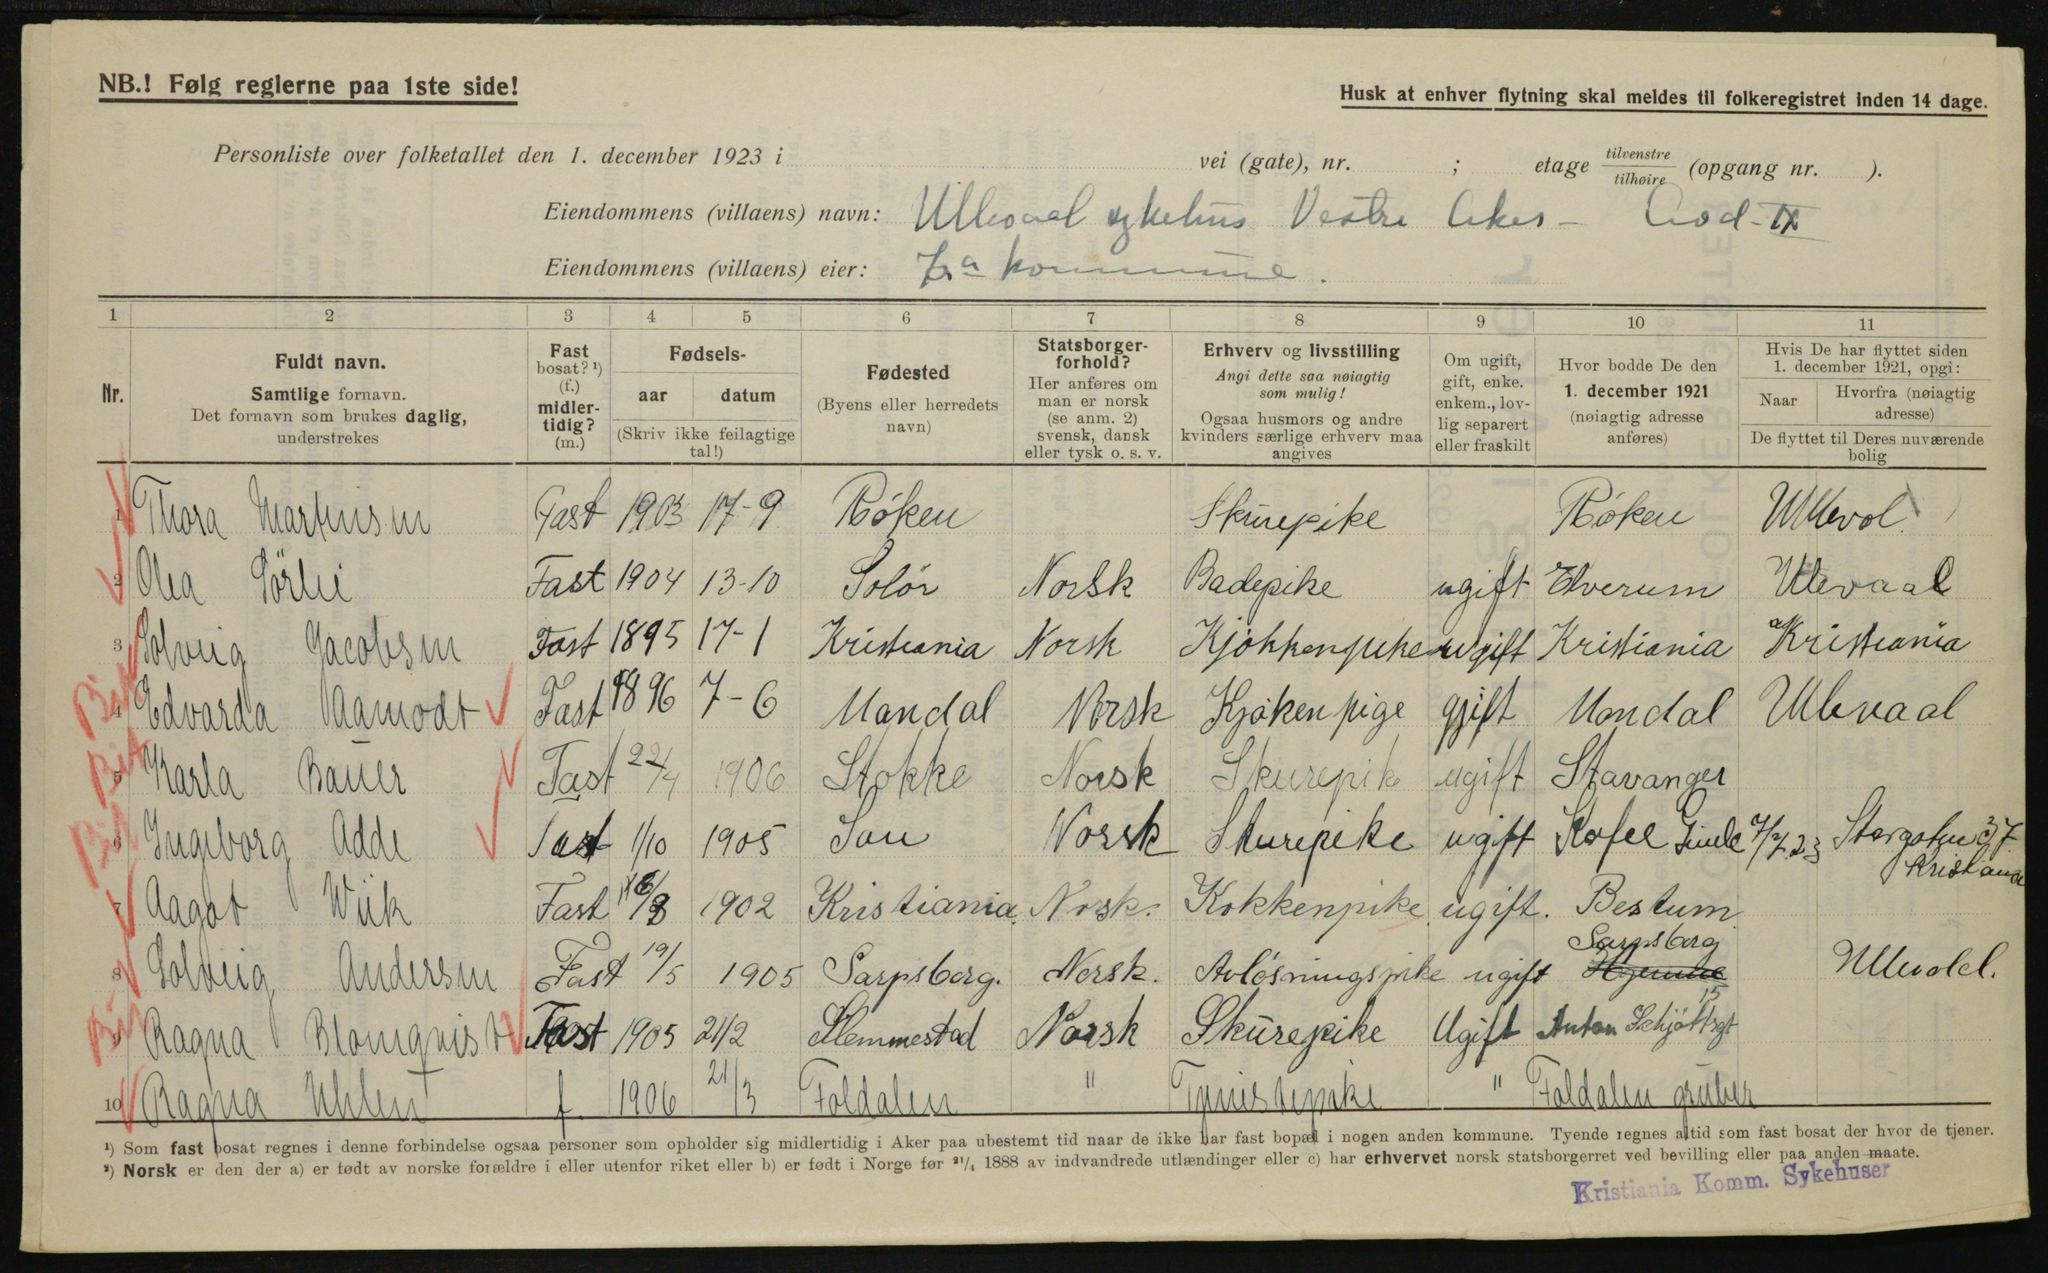 NB.! Følg reglerne paa 1ste side!
Husk at enhver flytning skal meldes til folkeregistret inden 14 dage.
Personliste over folketallet den 1. december 1923 i vei (gate), nr. ; etage tilvenstre tilhøire (opgang nr. ).
Eiendommens (villaens) navn: Ullevaal sykehus Vestre Aker -
Eiendommens (villaens) eier: Kra kommune.
1 2 3 4 5 6 7 8 9 10 11
Nr.
Fuldt navn.
Samtlige fornavn.
Det fornavn som brukes daglig,
understrekes
Fast
bosat? ¹)
(f.)
midler-
tidig?
(m.)
Fødsels-
aar datum
(Skriv ikke feilagtige
tal!)
Fødested
(Byens eller herredets
navn)
Statsborger-
forhold?
Her anføres om
man er norsk
(se anm. 2)
svensk, dansk
eller tysk o. s. v.
Erhverv og livsstilling
Angi dette saa nøiagtig
som mulig!
Ogsaa husmors og andre
kvinders særlige erhverv maa
angives
Om ugift,
gift, enke.
enkem., lov-
lig separert
eller fraskilt
Hvor bodde De den
1. december 1921
(nøiagtig adresse
anføres)
Hvis De har flyttet siden
1. december 1921, opgi:
Naar Hvorfra (nøiagtig
adresse)
De flyttet til Deres nuværende
bolig
1 Thora Martinsen Fast 1903 17-9 Röken Skurepike Röken Ullevol
2 Olea Sørlie Fast 1904 13-10 Solör Norsk Badepike ugift Elverum Ulevaal
3 Solveig Jacobsen Fast 1895 17-1 Kristiania Norsk Kjøkkenpike ugift Kristiania Kristiania
4 Edvarda Aamodt Fast 1896 7-6 Mandal Norsk Kjøkenpige gift Mandal Ulevaal
5 Karla Bauer Fast 22/4 1906 Stokke Norsk Skurepik ugift Stavanger
6 Ingeborg Adde Fast 1/10 1905 Son Norsk Skurepike ugift 7/7.23
Kristiania
7 Aagot Wiik Fast 1902 Kristiania. Norsk. Kokkenpike ugift. Bestum
Sarpsborg
8 Solveig Andersen Fast 19/5 1905 Sarpsborg. Norsk. Avlösningspike ugift Ullevold.
15
9 Ragna Blomqvist Fast 1905 21/2 Slemmestad Norsk Skurepike Ugift Anton Schjøttsgt
10 Ragna Uhlen f. 1906 21/3 Foldalen " " Foldalen gruber
¹) Som fast bosat regnes i denne forbindelse ogsaa personer som opholder sig midlertidig i Aker paa ubestemt tid naar de ikke har fast bopæl i nogen anden kommune. Tyende regnes altid som fast bosat der hvor de tjener.
²) Norsk er den der a) er født av norske forældre i eller utenfor riket eller b) er født i Norge før ²¹/₄ 1888 av indvandrede utlændinger eller c) har erhvervet norsk statsborgerret ved bevilling eller paa anden maate.
Kristiania Komm. Sykehuser